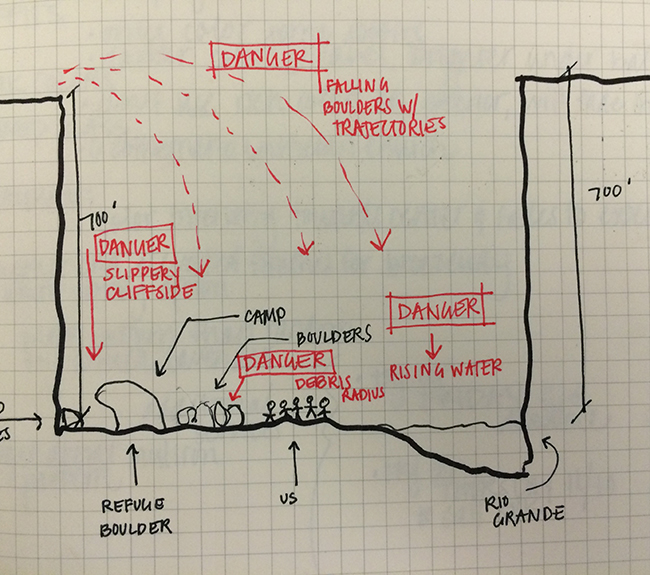 DANGER
FALLING
BOULDERS W/
TRAJECTORIES
700'
700'
DANGER
SLIPPERY
CLIFFSIDE
DANGER
RISING WATER
CAMP
BOULDERS
DANGER
DEBRIS
RADIUS
REFUGE
BOULDER
US
RIO
GRANDE